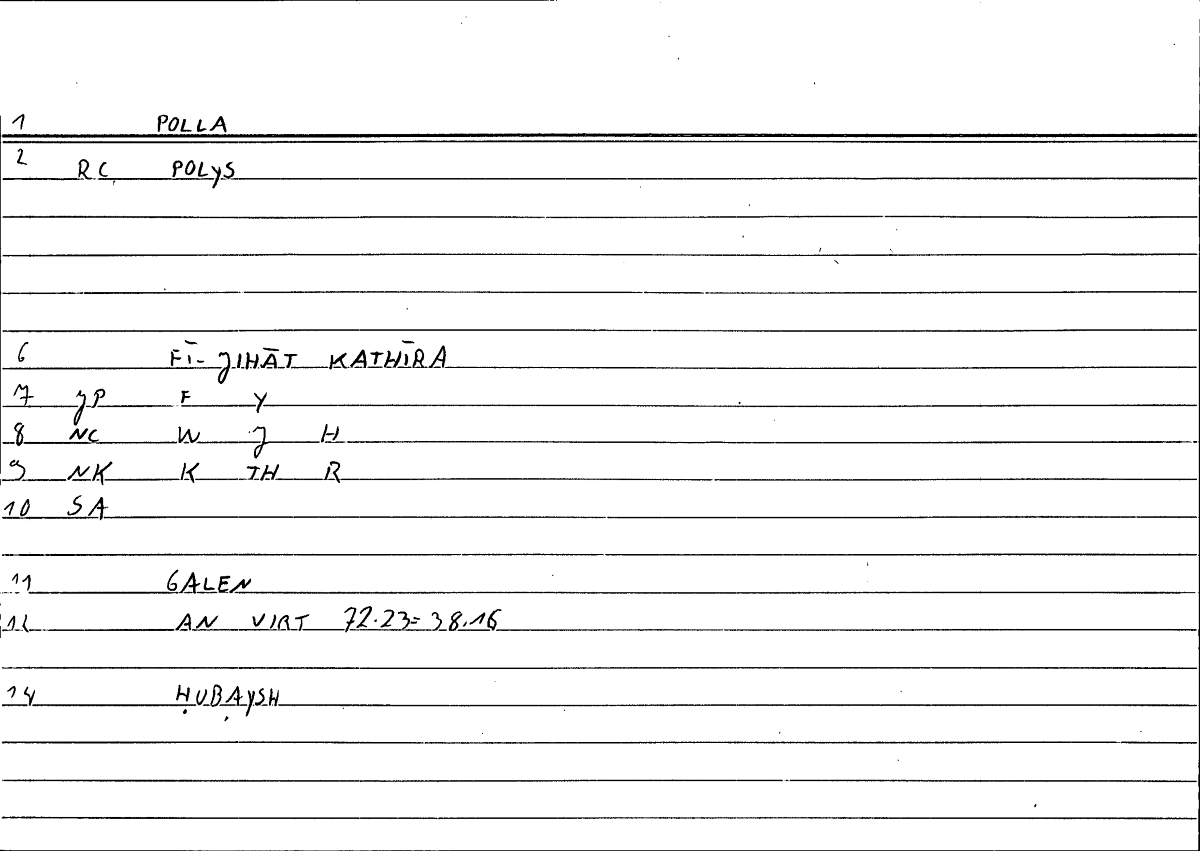 1 POLLA
2 RC POLYS
6 FĪ- JIHĀT KATHĪRA
7 JP F Y
8 NC W J H
9 NK K TH R
10 SA
11 GALEN
12 AN VIRT 72.23=38.16
14 ḤUBAYSH